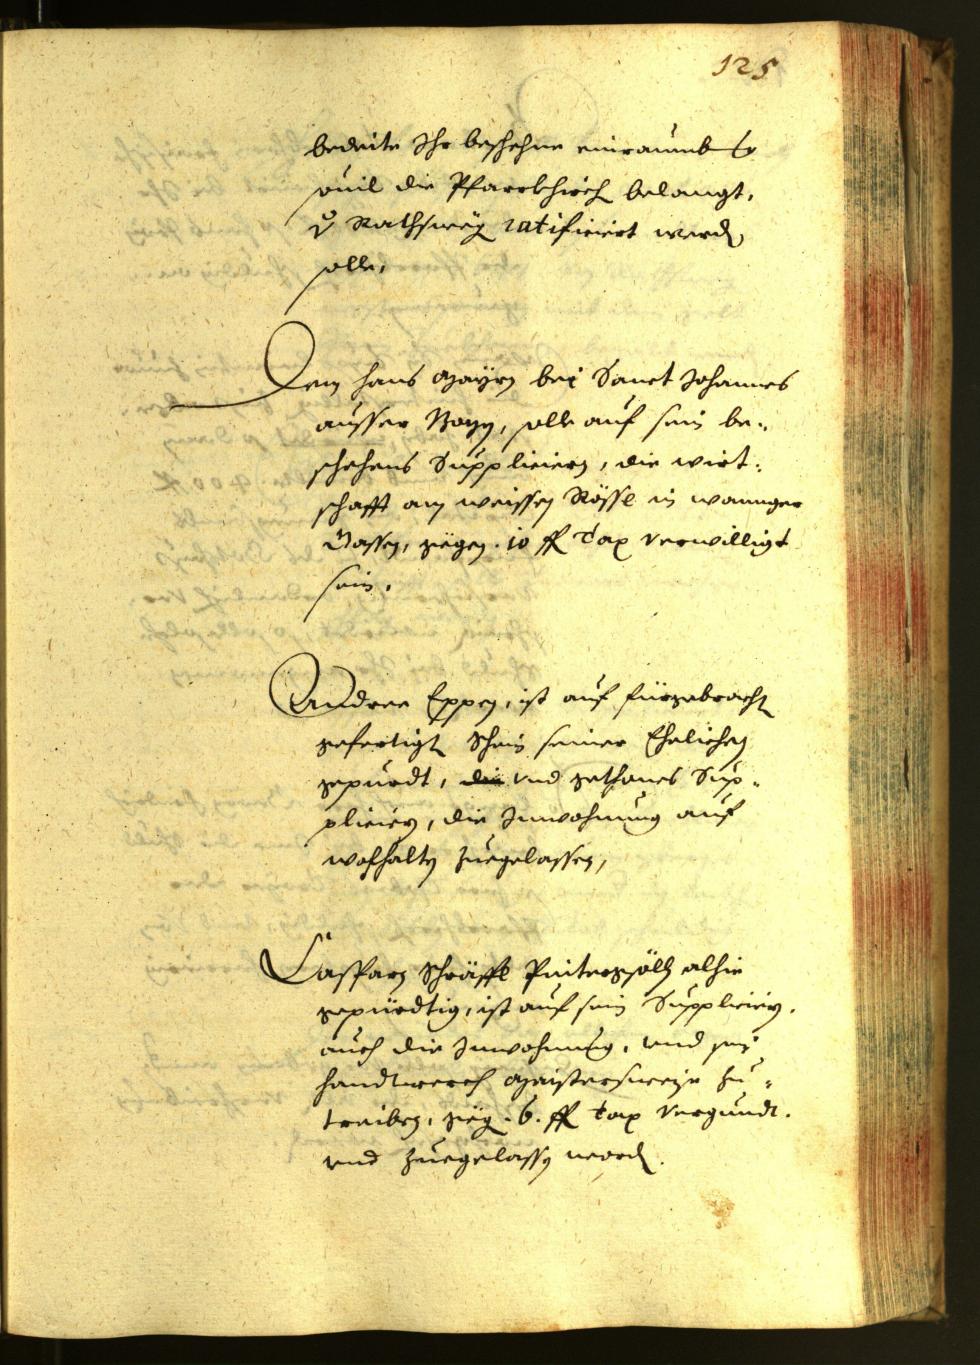 125
bedeite Ihr beschehne einraumb so
vuil die Pfarrkhirch belangt,
Rathsweg ratificiert werdn
solle,
Dem Hans Mayrn bei Sanct Johannes
ausser Bozn, solle auf sein be-
schehens Suppliciern, die wirt-
schafft am weissen Rössl in wannger
Gassen, gegen . 10 fl Tax verwilligt
sein,
Andree Eppen, ist auf fürgebracht
gefertigt Schein seiner Ehelichen
gepurdt, die vnd gethanes Sup-
pliciern, die Inwohnung auf
wolhalten zuegelassen,
Casparn Schräffl Puitergsölln alhie
gepürdtig, ist auf sein Suppliciern,
auch die Inwohnung, vnd sein
Handtwerch Maistersweise zu-
treiben, geg . 6 . fl Tax vergundt .
vnd zuegelassn word .